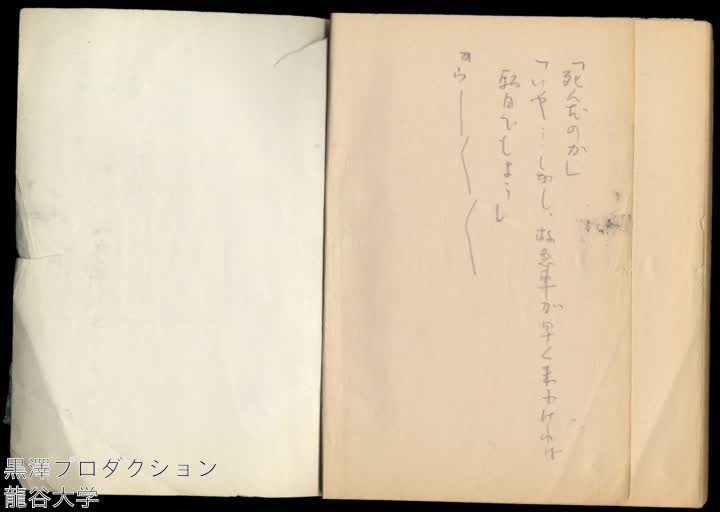 「死んだのか」
「いや…しかし、救急車が早く来なければ
駄目でしょう」
から
黒澤プロダクション
龍谷大学